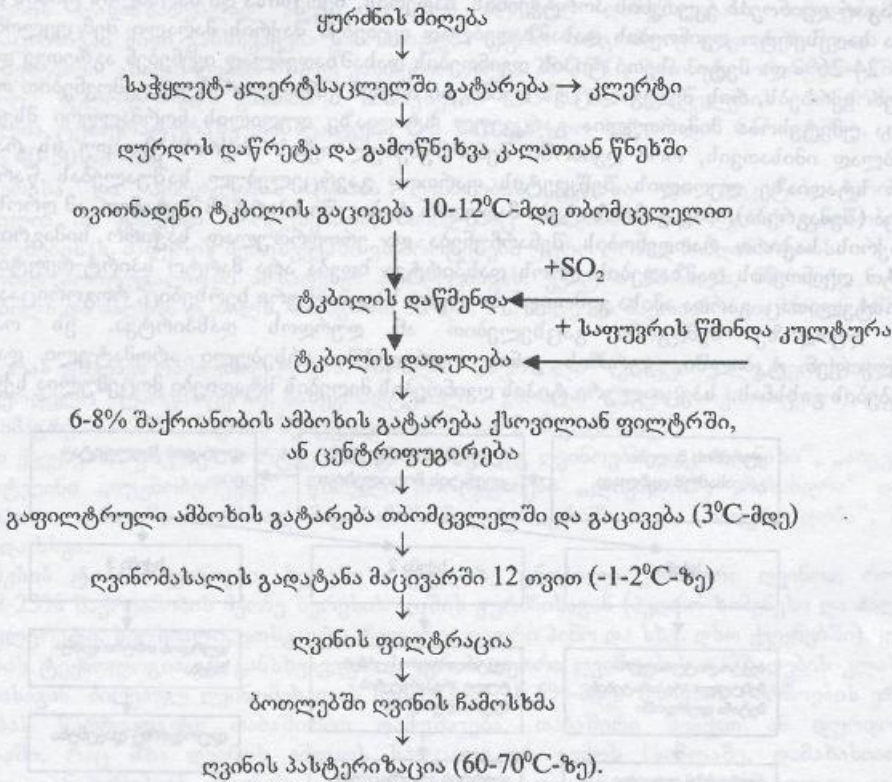 ყურძნის მიღება
↓
საჭყლეტ-კლერტსაცლელში გატარება → კლერტი
↓
დურდოს დაწრეტა და გამოწნეხვა კალათიან წნეხში
↓
თვითნადენი ტკბილის გაცივება 10-12⁰C-მდე თბომცვლელით
+SO₂
ტკბილის დაწმენდა
+ საფუვრის წმინდა კულტურა
ტკბილის დადუღება
↓
6-8% შაქრიანობის ამბოხის გატარება ქსოვილიან ფილტრში,
ან ცენტრიფუგირება
↓
გაფილტრული ამბოხის გატარება თბომცვლელში და გაცივება (3⁰C-მდე)
↓
ღვინომასალის გადატანა მაცივარში 12 თვით (-1-2⁰C-ზე)
↓
ღვინის ფილტრაცია
↓
ბოთლებში ღვინის ჩამოსხმა
↓
ღვინის პასტერიზაცია (60-70⁰C-ზე).